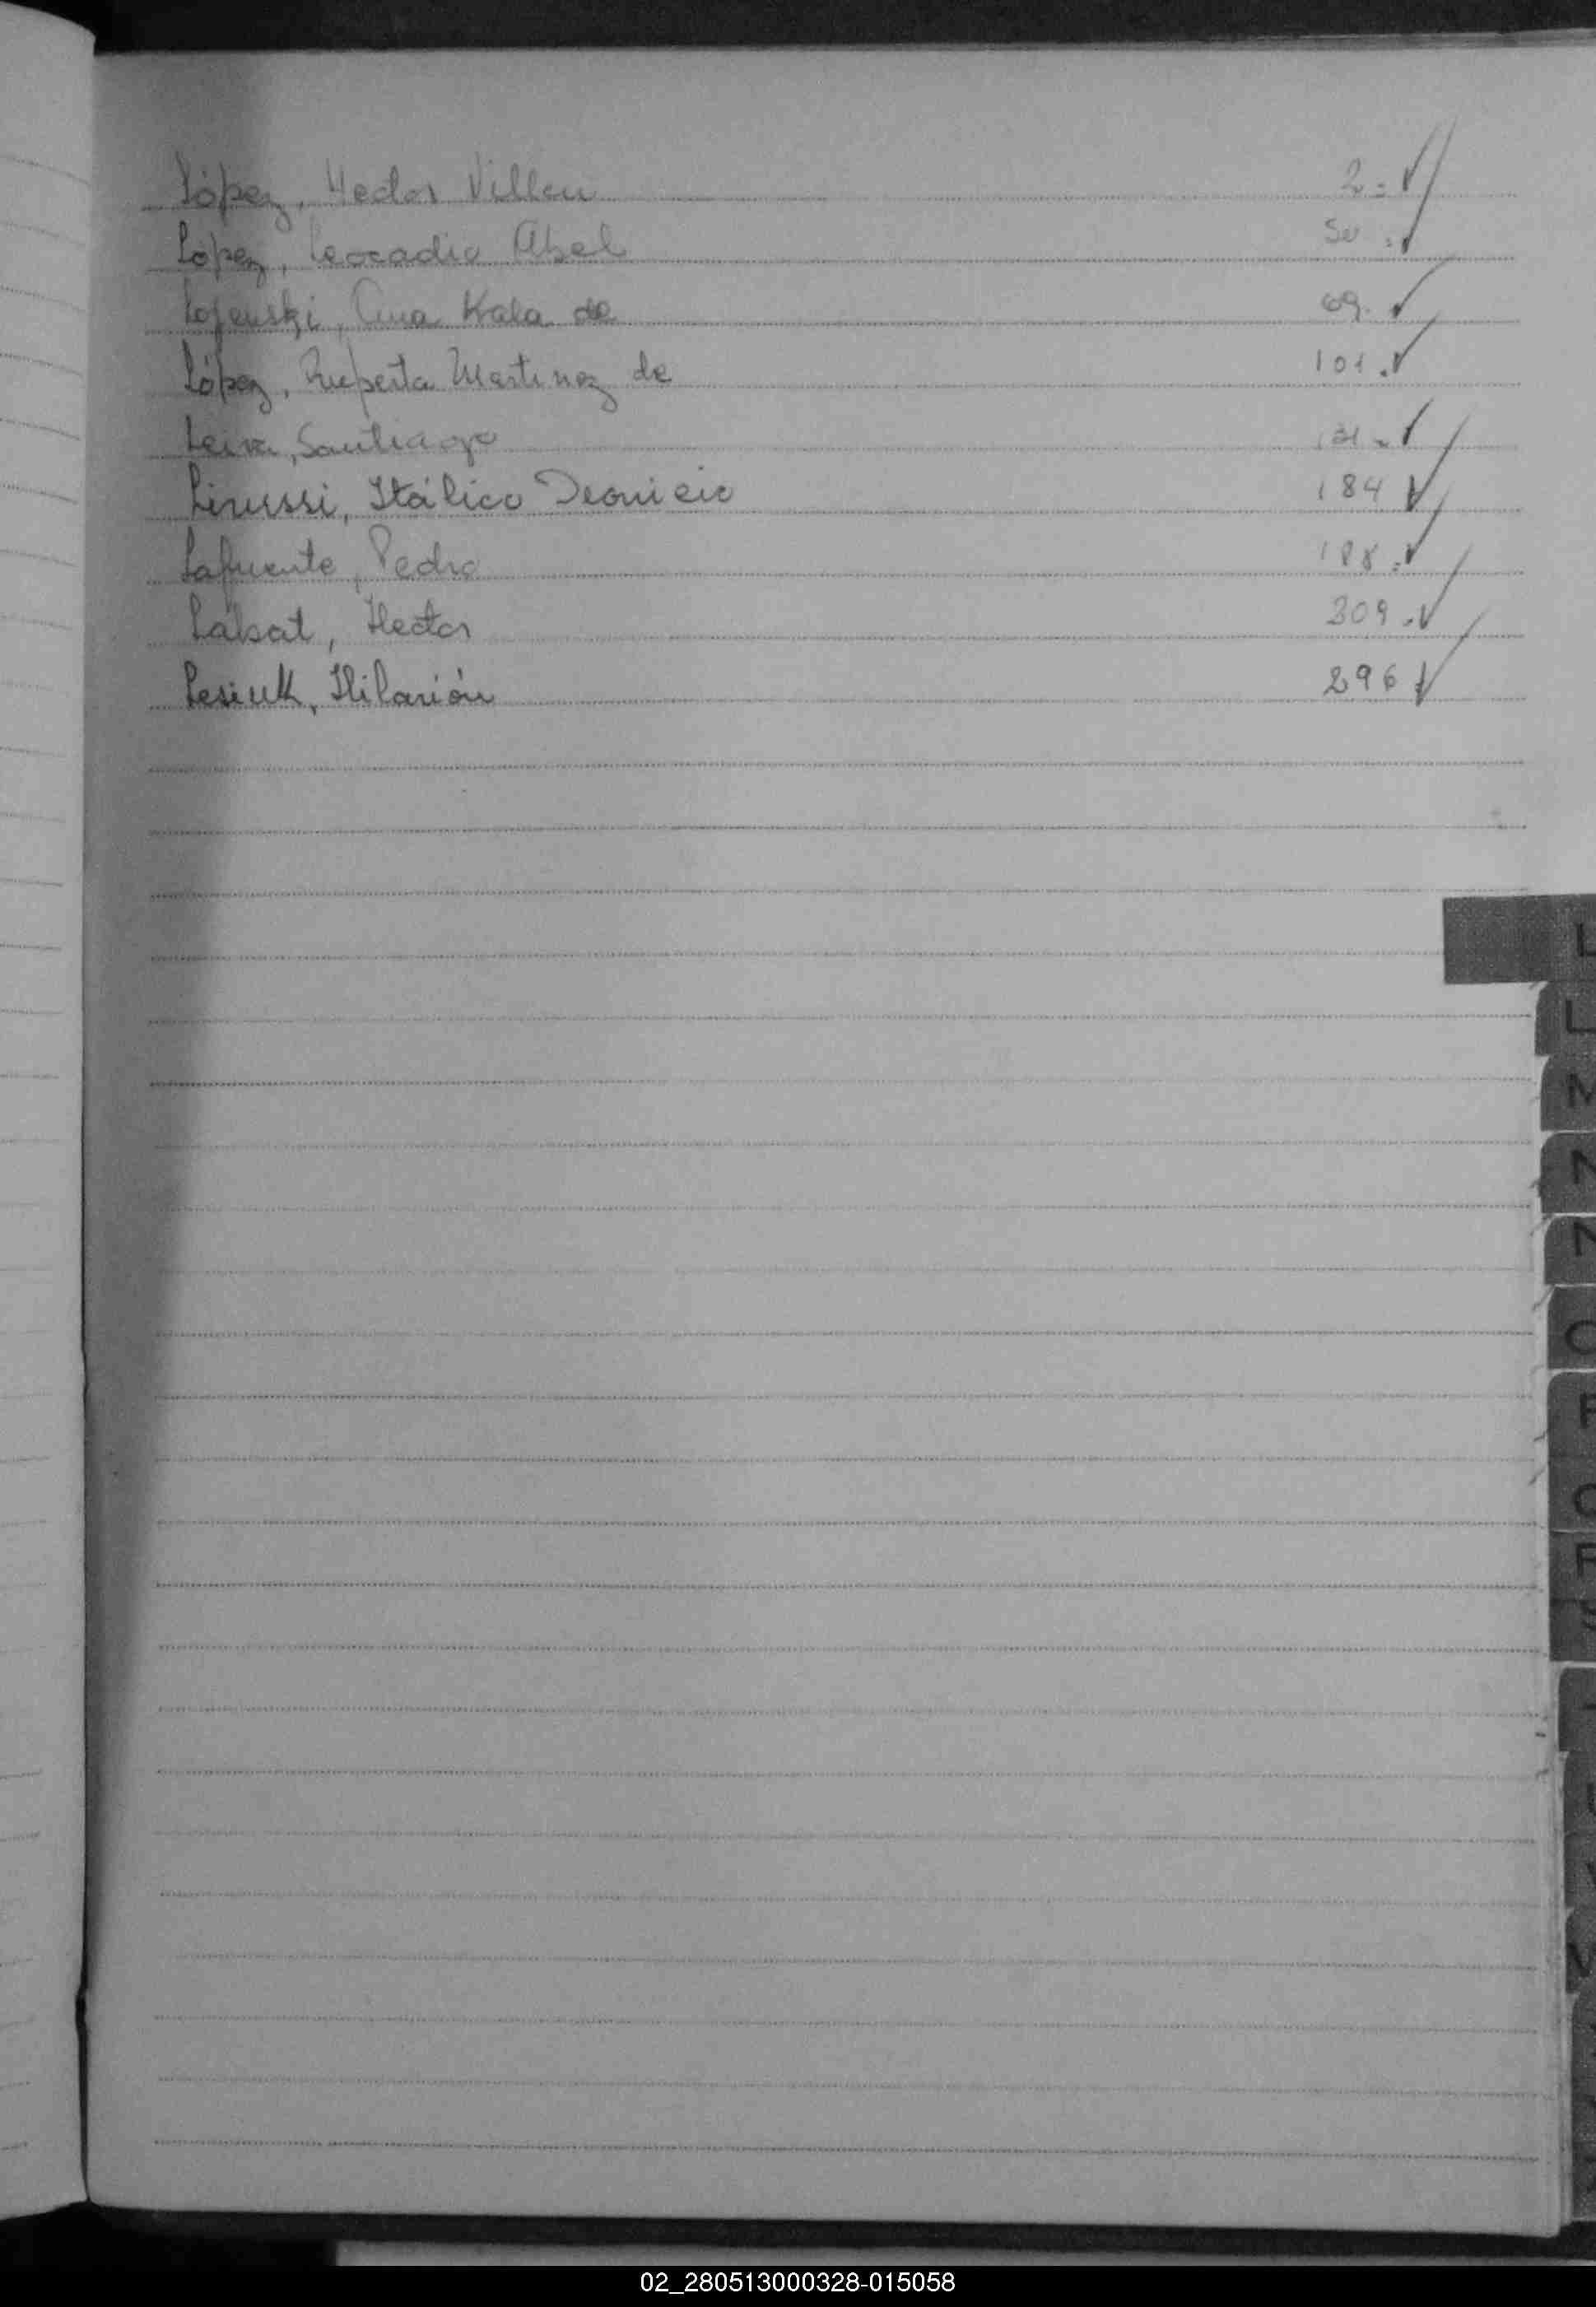 López, Hector Villeu 2.=
López, Leocadio Abel 50.=
Lojenski, Ana Kala de 69.
López, Ruperta Martinez de 101.
Leiva, Santiago 131.
Lirussi, Itálico Deonicio 184
Lafuente, Pedro 188.=
Labat, Hector 209.
Lesiuk, Hilarión 296
L
L
M
N
N
O
P
Q
R
02_280513000328-015058